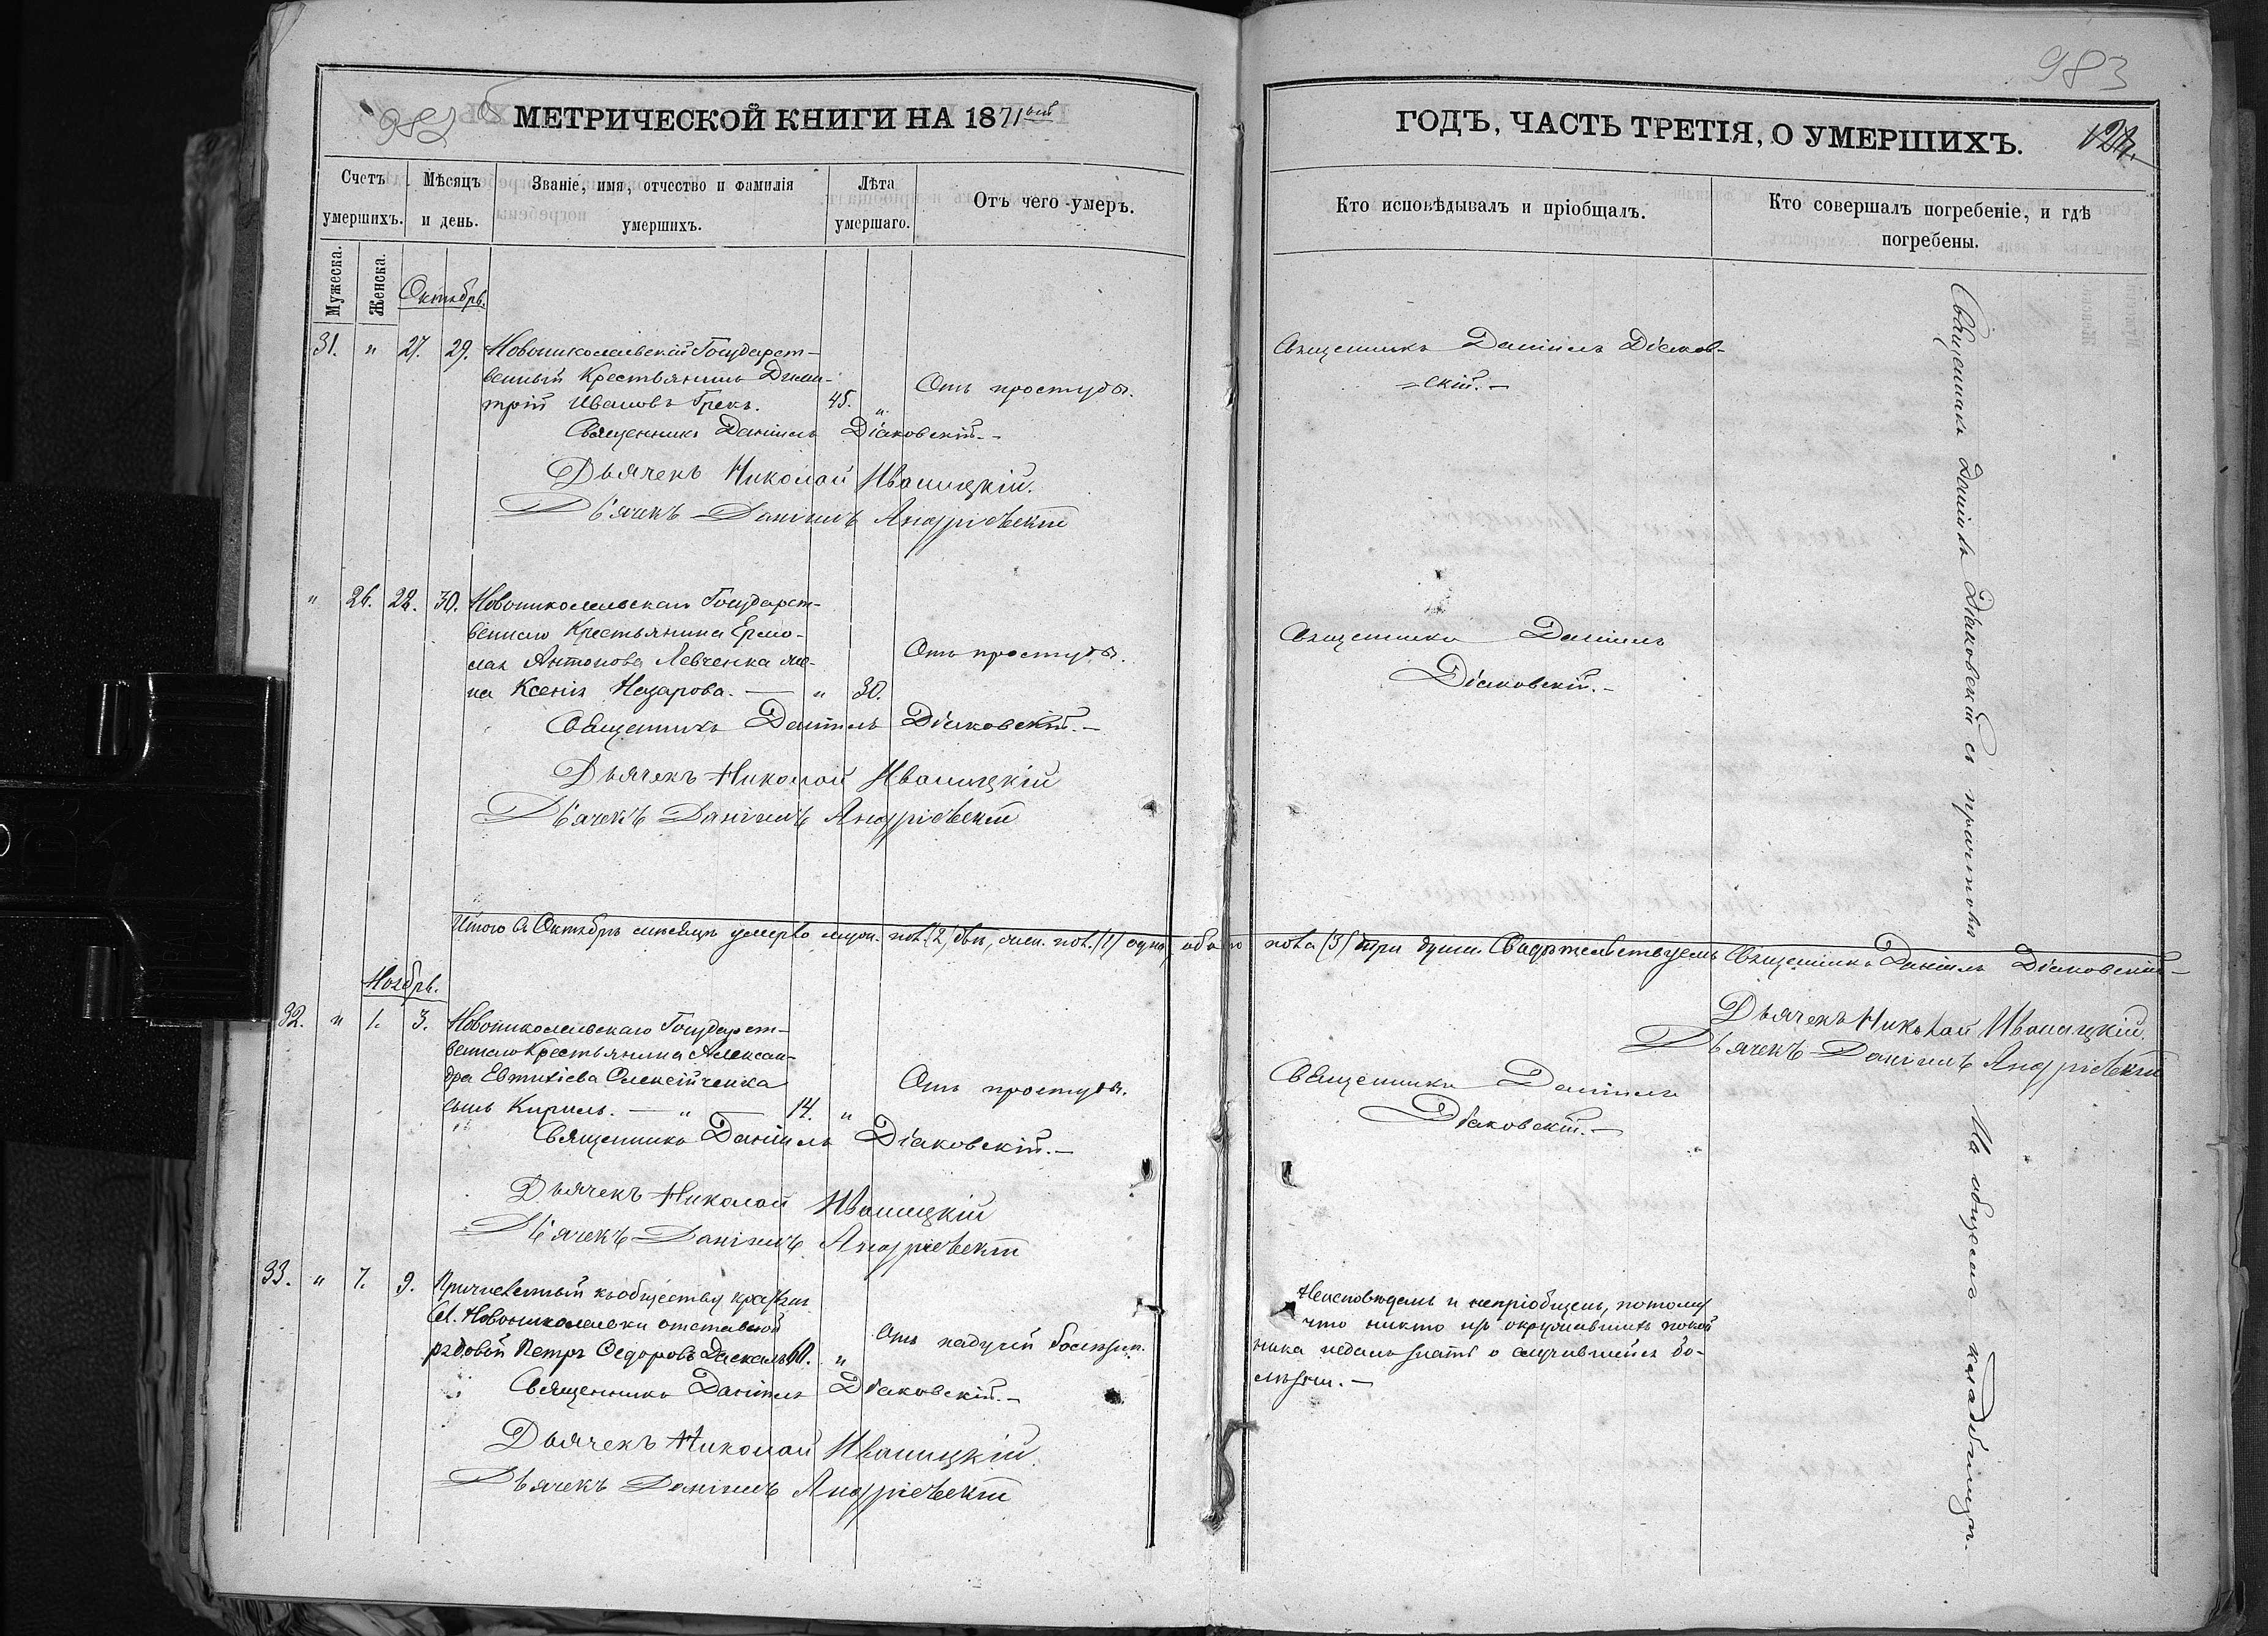 982
МЕТРИЧЕСКОЙ КНИГИ НА 1871ый
Счетъ умершихъ.
Мѣсяцъ и день.
Званіе, имя, отчество и фамилія умершихъ.
Лѣта умершаго.
Отъ чего умеръ.
Мужеска.
Женска.
Октябрь.
31. " 27. 29. Новониколаевскій Государст-
венный Крестьянинъ Дими-
трій Ивановъ Грекъ. 45. " Отъ простуды.
Священникъ Даніилъ Діаковскій.-
Дьячекъ Николай Иваницкій.
Дьячекъ Даніилъ Андріевскій
" 26. 28. 30. Новониколаевскаго Государст-
веннаго Крестьянина Ермо-
лая Антонова Левченка же-
на Ксенія Назарова. — " 30. Отъ простуды.
Священникъ Даніилъ Діаковскій.-
Дьячекъ Николай Иваницкій
Дьячекъ Даніилъ Андріевскій
Итого въ Октябрѣ мѣсяцѣ умерло муж. пола (2) два, жен. пола (1) одна, обоего
Ноябрь.
32. " 1. 3. Новониколаевскаго Государст-
веннаго Крестьянина Алексан-
дра Евтихіева Олексійченка
сынъ Кирилъ. — " — 14. " Отъ простуды.
Священникъ Даніилъ Діаковскій.-
Дьячекъ Николай Иваницкій
Дьячекъ Даніилъ Андріевскій
33. " 7. 9. Причисленный къ обществу крестьянъ
сл. Новониколаевки отставной
рядовой Петръ Ѳедоровъ 60. " Отъ падучей болѣзни.
Священникъ Даніилъ Діаковскій.-
Дьячекъ Николай Иваницкій.
Дьячекъ Даніилъ Андріевскій
983
ГОДЪ, ЧАСТЬ ТРЕТІЯ, О УМЕРШИХЪ.
Кто исповѣдывалъ и пріобщалъ.
Кто совершалъ погребеніе, и гдѣ погребены.
Священникъ Даніилъ Діаков-
=скій.-
Священникъ Даніилъ
Діаковскій.-
пола (3) три души. Свидѣтельствуемъ Священникъ Даніилъ Діаковскій-
Дьячекъ Николай Иваницкій.
Дьячекъ Даніилъ Андріевскій
Священникъ Даніилъ
Діаковскій.-
Неисповѣданъ и непріобщенъ, потому
что никто изъ окружавшихъ покой
ника недалъ знать о случившейся бо-
лѣзни.-
Священникъ Даніилъ Діаковскій съ причтомъ
На общемъ кладбищѣ.